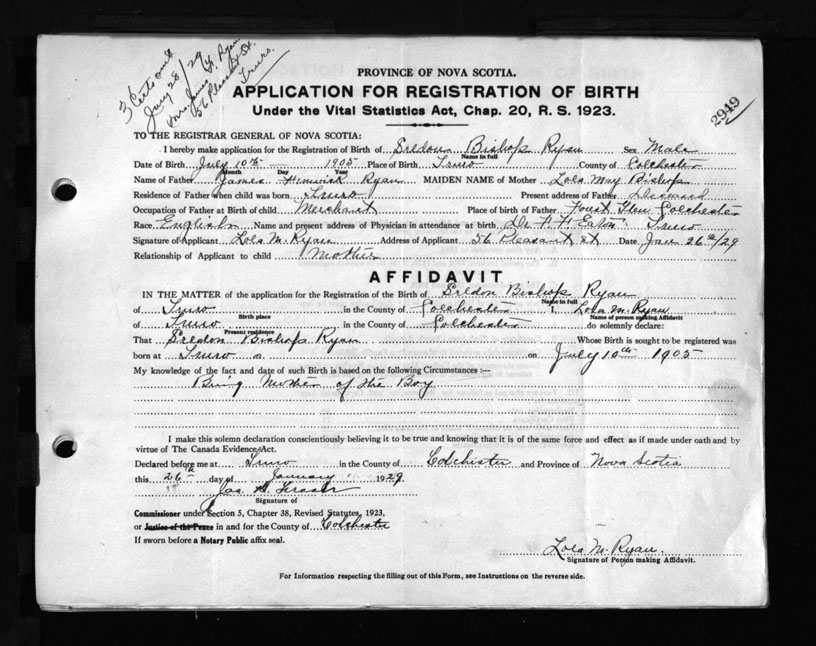 3 Certs out
Jany 28/29
Mrs James F. Ryan
56 Pleasant St.
Truro.
2949
PROVINCE OF NOVA SCOTIA.
APPLICATION FOR REGISTRATION OF BIRTH
Under the Vital Statistics Act, Chap. 20, R. S. 1923.
TO THE REGISTRAR GENERAL OF NOVA SCOTIA:
I hereby make application for the Registration of Birth of Bishop Ryan Sex Male
Name in full
Date of Birth July 10th 1905 Place of Birth Truro County of Colchester
Month Day Year
Name of Father James Ryan MAIDEN NAME of Mother Lola May Bishop
Residence of Father when child was born Truro Present address of Father Deceased
Occupation of Father at Birth of child Merchant Place of birth of Father Colchester
Race English Name and present address of Physician in attendance at birth Dr F. F. Eaton Truro
Signature of Applicant Lola M. Ryan Address of Applicant 56 Pleasant st Date Jan 26th/29
Relationship of Applicant to child Mother
AFFIDAVIT
IN THE MATTER of the application for the Registration of the Birth of Bishop Ryan
Name in full
of Truro in the County of Colchester I, Lola M. Ryan
Birth place Name of person making Affidavit
of Truro in the County of Colchester do solemnly declare:
Present residence
That Bishop Ryan Whose Birth is sought to be registered was
born at Truro on July 10th 1905
My knowledge of the fact and date of such Birth is based on the following Circumstances :—
Being Mother of the Boy
I make this solemn declaration conscientiously believing it to be true and knowing that it is of the same force and effect as if made under oath and by
virtue of The Canada Evidence Act.
Declared before me at Truro in the County of Colchester and Province of Nova Scotia
this 26th day of January 1929
Jas. Fraser
Signature of
Commissioner under Section 5, Chapter 38, Revised Statutes, 1923,
or Justice of the Peace in and for the County of Colchester
If sworn before a Notary Public affix seal.
Lola M. Ryan.
Signature of Person making Affidavit.
For Information respecting the filling out of this Form, see Instructions on the reverse side.